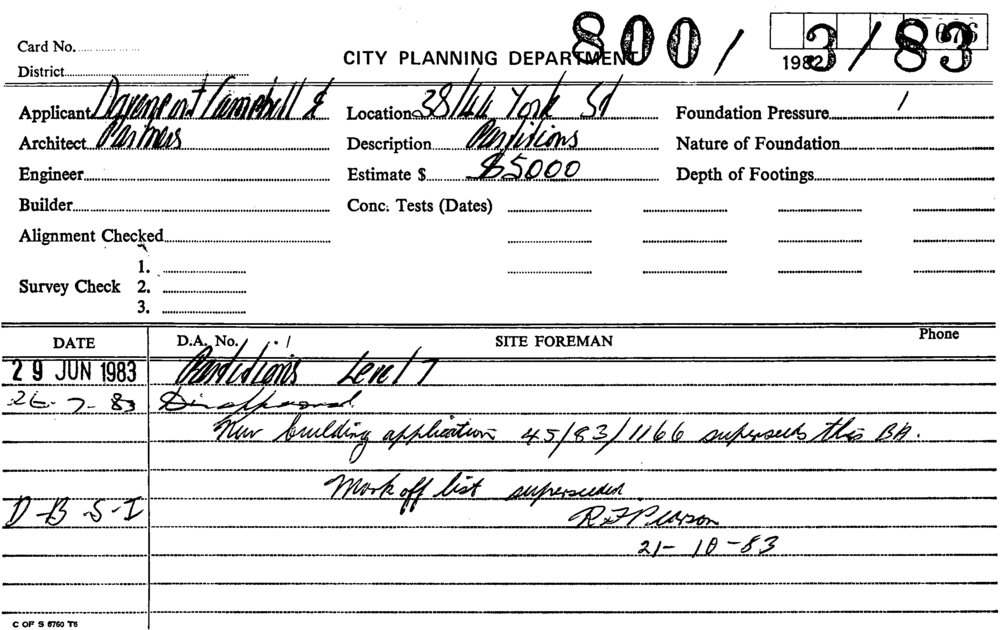 800/3/83
Card No.
CITY PLANNING DEPARTMENT
1982
District
Applicant Davenport Campbell &
Location 38/44 York St
Foundation Pressure
Architect Partners
Description Partitions
Nature of Foundation
Engineer
Estimate $ $5000
Depth of Footings
Builder
Conc. Tests (Dates)
Alignment Checked
1.
Survey Check 2.
3.
DATE D.A. No. SITE FOREMAN Phone
29 JUN 1983 Partitions Level 7
26-7-83 Disapproved
New building application 45/83/1166 superseeds this BA.
Mark off list superseeded.
D-B-S-I
R F Pearson
21-10-83
C OF S 6760 T6